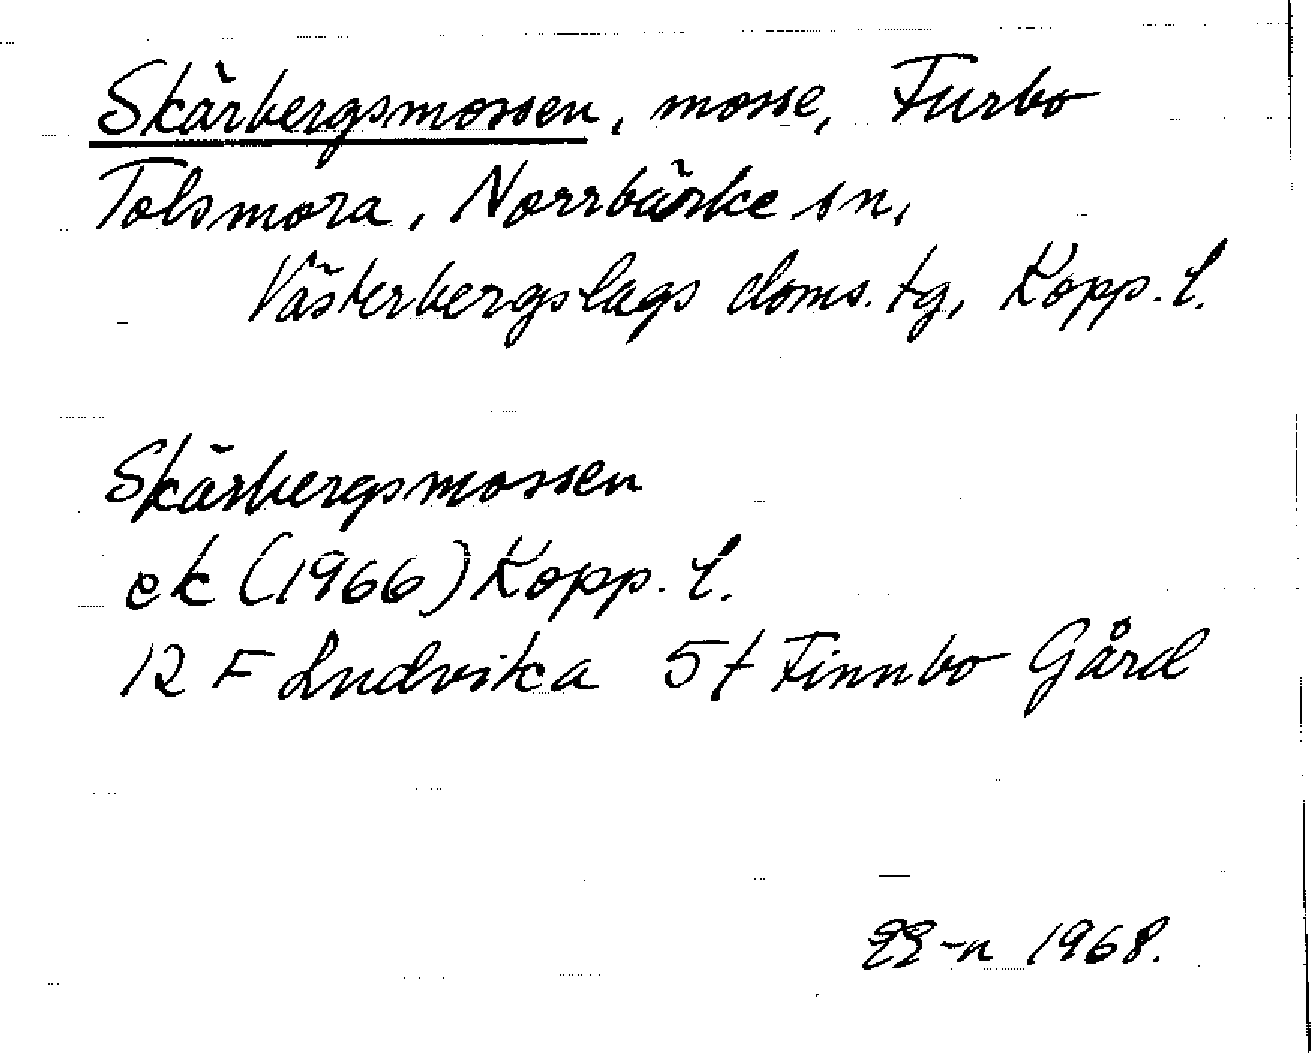 Skärbergsmossen, mosse, Furbo
Tolsmora, Norrbärke sn,
Västerbergslags doms. tg, Kopp. l.
Skärbergsmossen
ek (1966) Kopp. l.
12 F Ludvika 5 f Finnbo Gård
EE-n 1968.